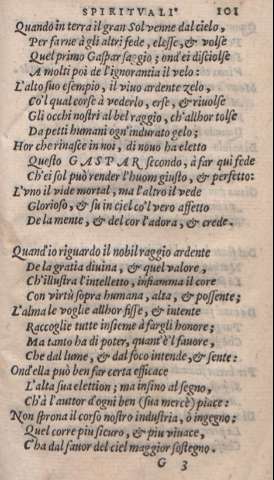 SPIRITVALI. 101
Quando in terra il gran Sol venne dal cielo,
Per farne à gli altri fede, elesse, & volse
Quel primo Gaspar saggio; ond'ei disciolse
A molti poi de l'ignorantia il velo:
L'alto suo esempio, il viuo ardente zelo,
Co'l qual corse à vederlo, erse, & riuolse
Gli occhi nostri al bel raggio, ch'allhor tolse
Da petti humani ogn'indurato gelo;
Hor che rinasce in noi, di nouo ha eletto
Questo GASPAR secondo, à far qui fede
Ch'ei sol può render l'huom giusto, & perfetto:
L'vno il vide mortal, ma l'altro il vede
Glorioso, & su in ciel co'l vero affetto
De la mente, & del cor l'adora, & crede.
Quand'io riguardo il nobil raggio ardente
De la gratia diuina, & quel valore,
Ch'illustra l'intelletto, infiamma il core
Con virtù sopra humana, alta, & possente;
L'alma le voglie allhor fisse, & intente
Raccoglie tutte insieme à fargli honore;
Ma tanto ha di poter, quant'è'l fauore,
Che dal lume, & dal foco intende, & sente:
Ond'ella può ben far certa efficace
L'alta sua elettion; ma insino al segno,
Ch'à l'auttor d'ogni ben (sua mercè) piace:
Non sprona il corso nostro industria, ò ingegno;
Quel corre piu sicuro, & piu viuace,
C'ha dal fauor del ciel maggior sostegno.
G 3